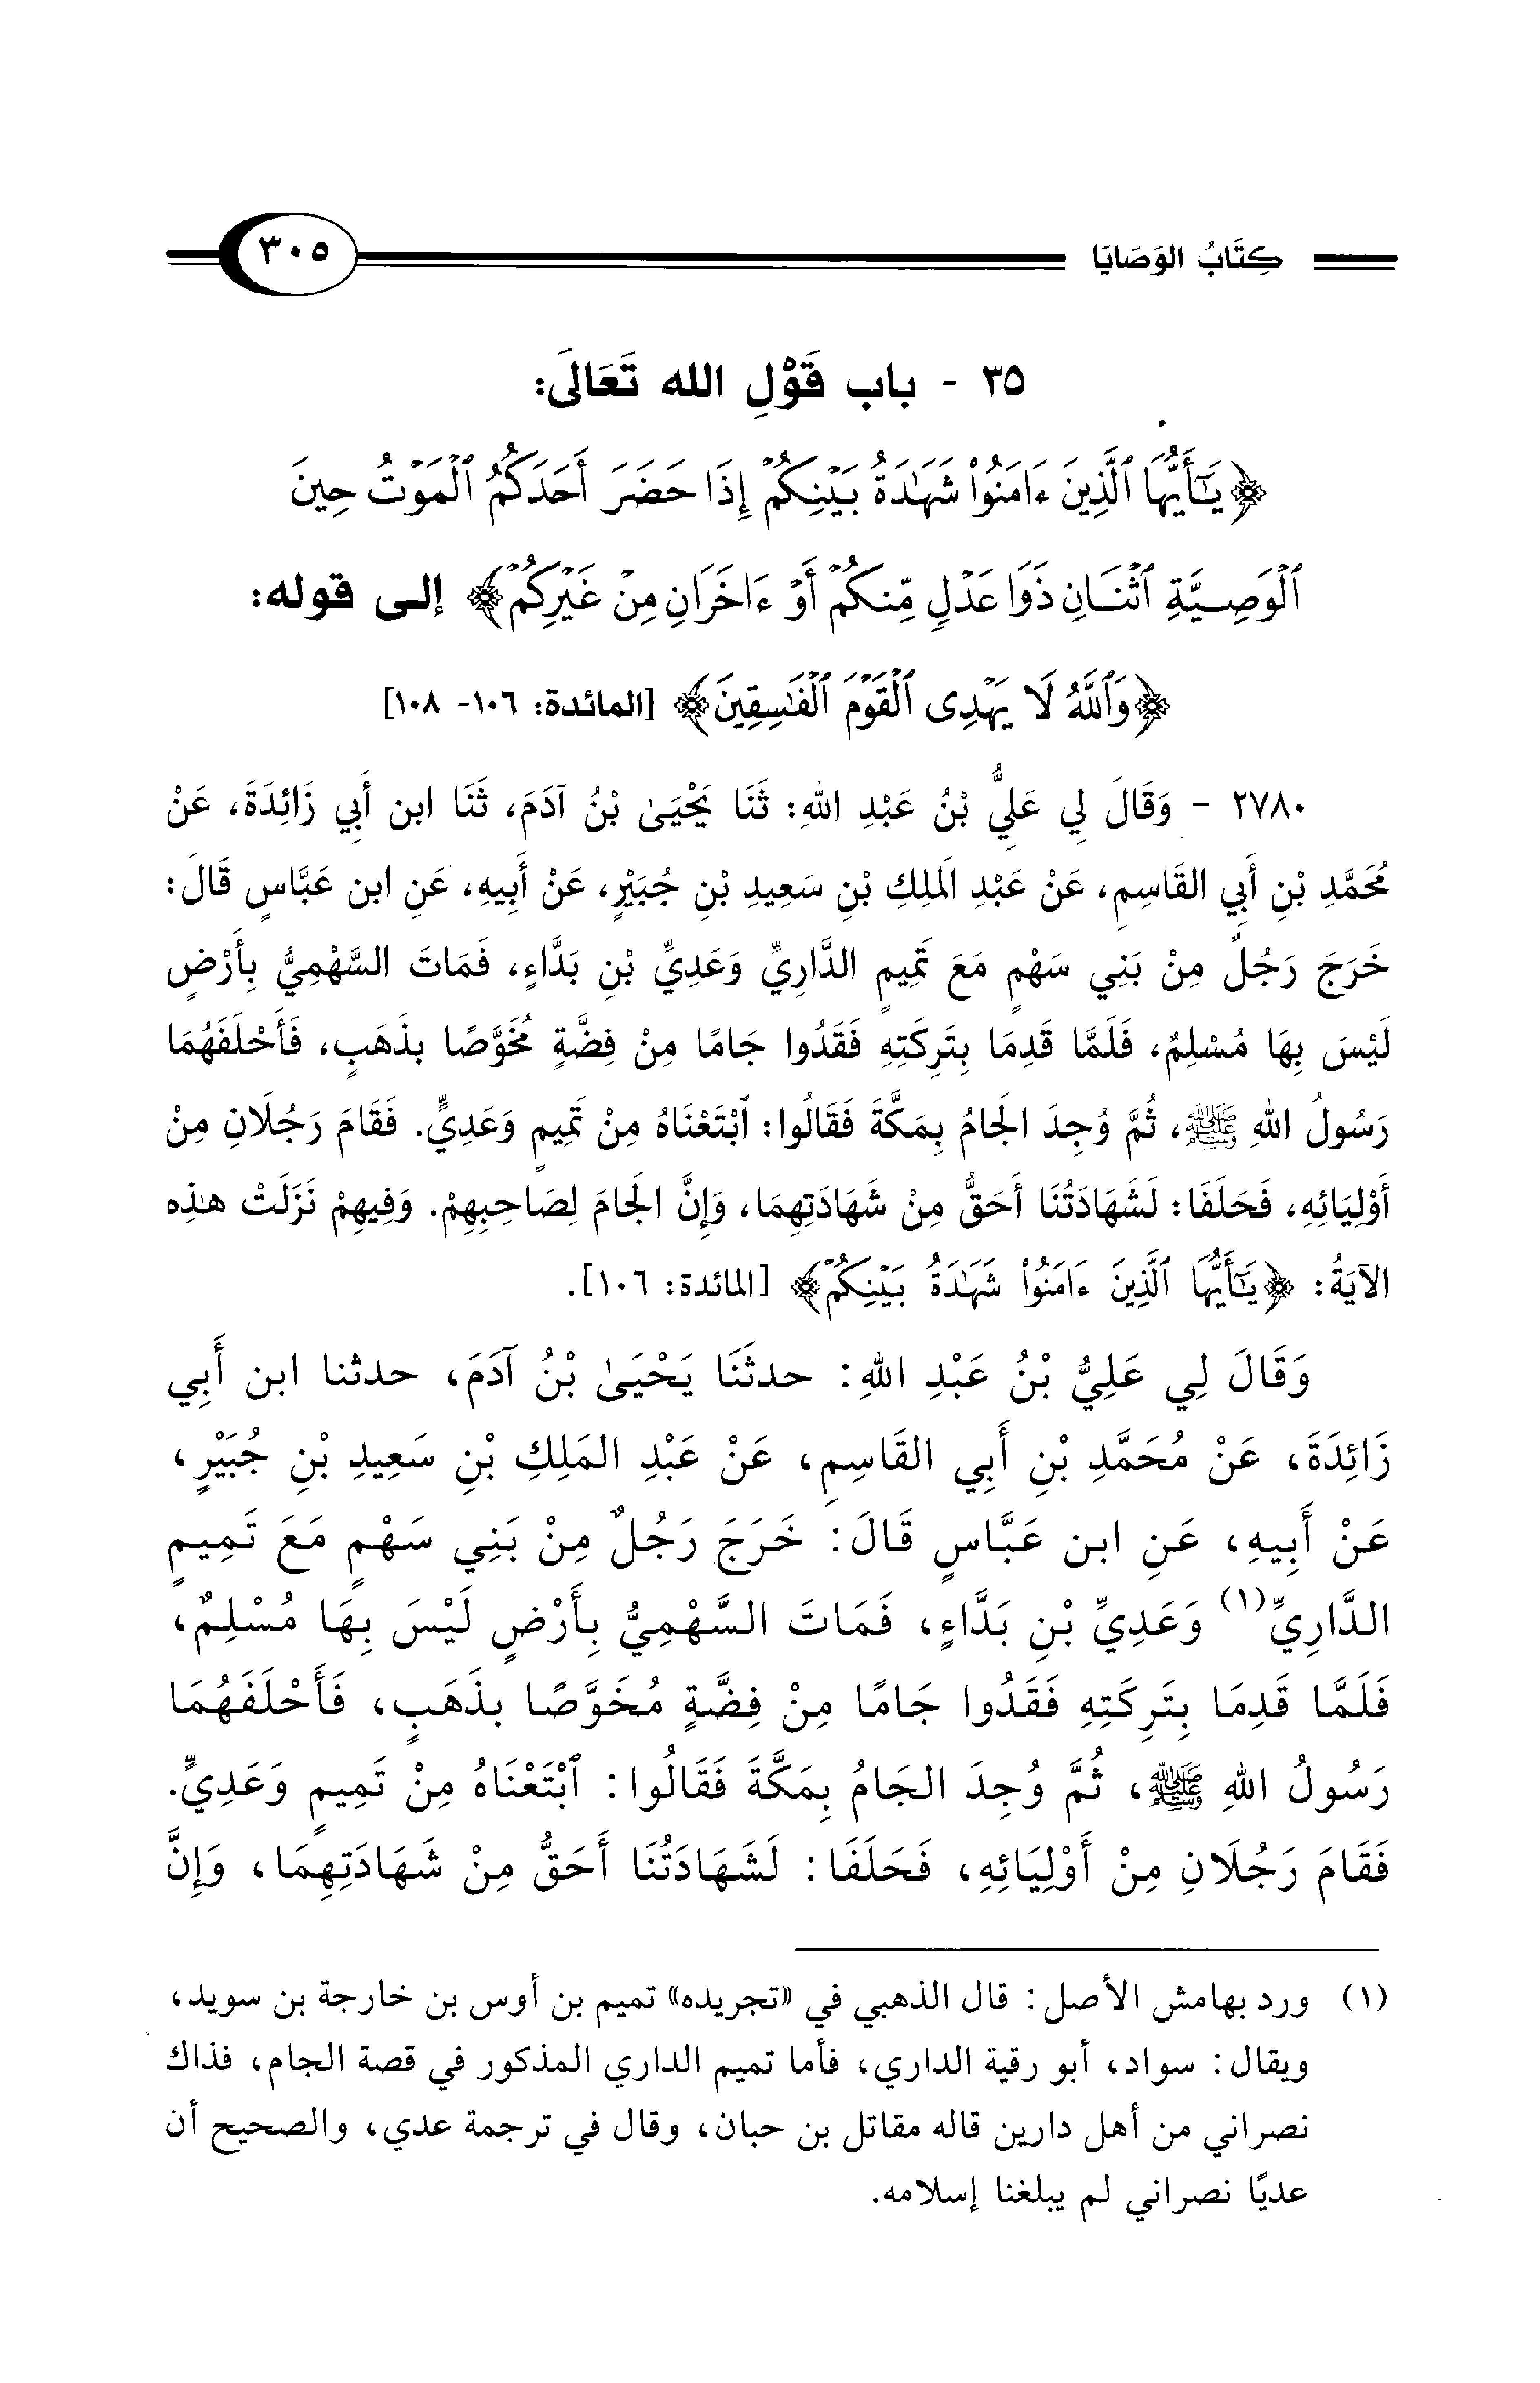 كِتَابُ الوَصَايَا
٣٠٥
٣٥ - باب قَوْلِ الله تَعَالَى:
﴿يَٰٓأَيُّهَا ٱلَّذِينَ ءَامَنُوا۟ شَهَٰدَةُ بَيْنِكُمْ إِذَا حَضَرَ أَحَدَكُمُ ٱلْمَوْتُ حِينَ
ٱلْوَصِيَّةِ ٱثْنَانِ ذَوَا عَدْلٍ مِّنكُمْ أَوْ ءَاخَرَانِ مِنْ غَيْرِكُمْ﴾ إلى قوله:
﴿وَٱللَّهُ لَا يَهْدِى ٱلْقَوْمَ ٱلْفَٰسِقِينَ﴾ [المائدة: ١٠٦- ١٠٨]
٢٧٨٠ - وَقَالَ لِي عَلِيُّ بْنُ عَبْدِ اللهِ: ثَنَا يَحْيَىٰ بْنُ آدَمَ، ثَنَا ابن أَبِي زَائِدَةَ، عَنْ
مُحَمَّدِ بْنِ أَبِي القَاسِمِ، عَنْ عَبْدِ الَملِكِ بْنِ سَعِيدِ بْنِ جُبَيْرٍ، عَنْ أَبِيهِ، عَنِ ابن عَبَّاسٍ قَالَ:
خَرَجَ رَجُلٌ مِنْ بَنِي سَهْمٍ مَعَ تَمِيمٍ الدَّارِيِّ وَعَدِيِّ بْنِ بَدَّاءٍ، فَمَاتَ السَّهْمِيُّ بِأَرْضٍ
لَيْسَ بِهَا مُسْلِمٌ، فَلَمَّا قَدِمَا بِتَرِكَتِهِ فَقَدُوا جَامًا مِنْ فِضَّةٍ مُخَوَّصًا بِذَهَبٍ، فَأَحْلَفَهُمَا
رَسُولُ اللهِ ﷺ، ثُمَّ وُجِدَ الَجامُ بِمَكَّةَ فَقَالُوا: ٱبْتَعْنَاهُ مِنْ تَمِيمٍ وَعَدِيٍّ. فَقَامَ رَجُلَانِ مِنْ
أَوْلِيَائِهِ، فَحَلَفَا: لَشَهَادَتُنَا أَحَقُّ مِنْ شَهَادَتِهِمَا، وَإِنَّ الَجامَ لِصَاحِبِهِمْ. وَفِيهِمْ نَزَلَتْ هذِه
الآيَةُ: ﴿يَٰٓأَيُّهَا ٱلَّذِينَ ءَامَنُوا۟ شَهَٰدَةُ بَيْنِكُمْ﴾ [المائدة: ١٠٦].
وَقَالَ لِي عَلِيُّ بْنُ عَبْدِ اللهِ: حدثَنَا يَحْيَىٰ بْنُ آدَمَ، حدثنا ابن أَبِي
زَائِدَةَ، عَنْ مُحَمَّدِ بْنِ أَبِي القَاسِمِ، عَنْ عَبْدِ المَلِكِ بْنِ سَعِيدِ بْنِ جُبَيْرٍ،
عَنْ أَبِيهِ، عَنِ ابن عَبَّاسٍ قَالَ: خَرَجَ رَجُلٌ مِنْ بَنِي سَهْمٍ مَعَ تَمِيمٍ
الدَّارِيِّ(١) وَعَدِيِّ بْنِ بَدَّاءٍ، فَمَاتَ السَّهْمِيُّ بِأَرْضٍ لَيْسَ بِهَا مُسْلِمٌ،
فَلَمَّا قَدِمَا بِتَرِكَتِهِ فَقَدُوا جَامًا مِنْ فِضَّةٍ مُخَوَّصًا بِذَهَبٍ، فَأَحْلَفَهُمَا
رَسُولُ اللهِ ﷺ، ثُمَّ وُجِدَ الجَامُ بِمَكَّةَ فَقَالُوا: ٱبْتَعْنَاهُ مِنْ تَمِيمٍ وَعَدِيٍّ.
فَقَامَ رَجُلَانِ مِنْ أَوْلِيَائِهِ، فَحَلَفَا: لَشَهَادَتُنَا أَحَقُّ مِنْ شَهَادَتِهِمَا، وَإِنَّ
(١) ورد بهامش الأصل: قال الذهبي في «تجريده» تميم بن أوس بن خارجة بن سويد،
ويقال: سواد، أبو رقية الداري، فأما تميم الداري المذكور في قصة الجام، فذاك
نصراني من أهل دارين قاله مقاتل بن حبان، وقال في ترجمة عدي، والصحيح أن
عديًا نصراني لم يبلغنا إسلامه.